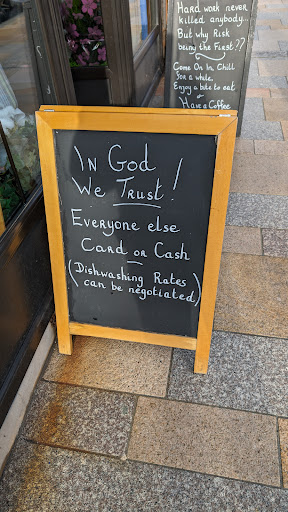 Hard work never
killed anybody...
But why Risk
being the First??
Come On In Chill
For a while.
Enjoy a bite to eat
or
Have a Coffee
In God
We Trust!
Everyone else
Card or Cash
(Dishwashing Rates
can be negotiated)